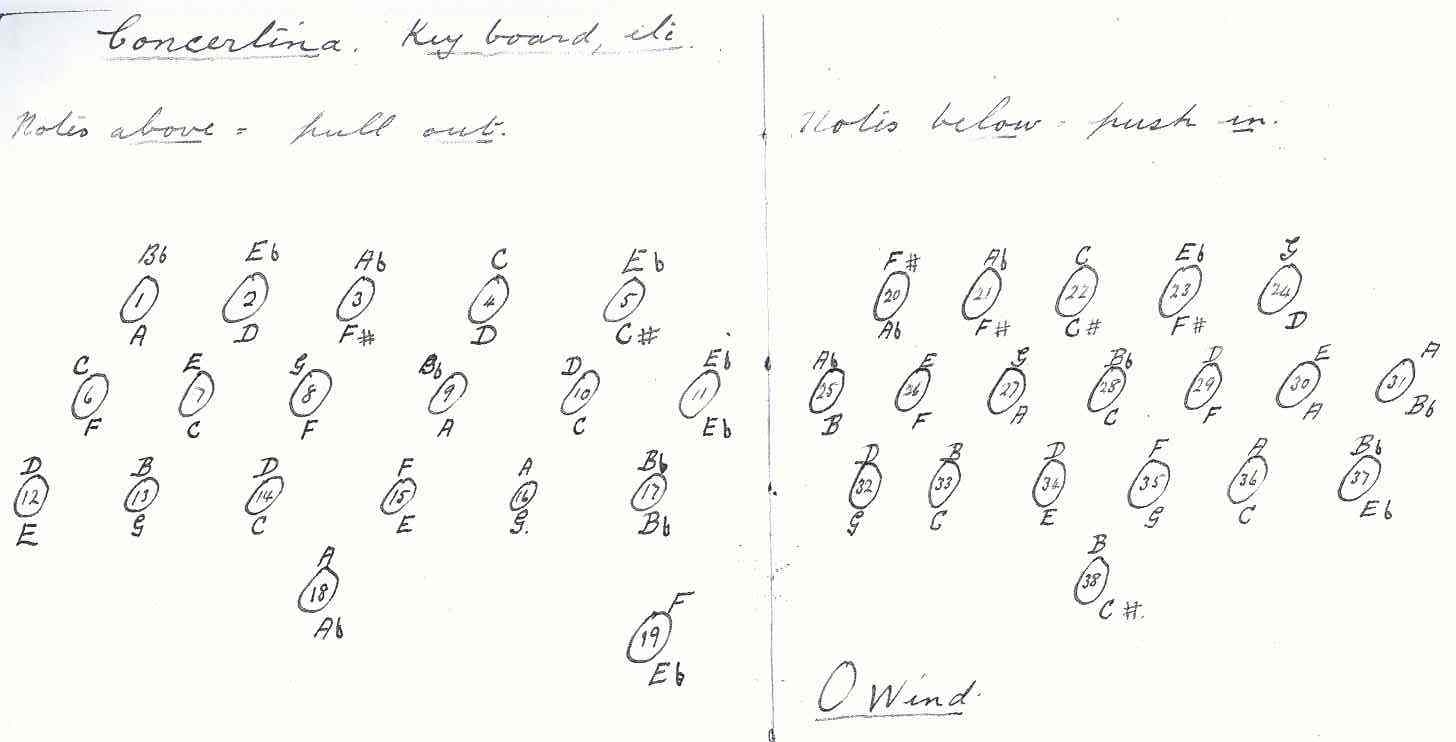 Concertina. Key board, etc.
Notes above = pull out.
Notes below - push in.
Bb Eb Ab C Eb
1 2 3 4 5
A D F# D C#
C E G Bb D Eb
6 7 8 9 10 11
F C F A C Eb
D B D F A Bb
12 13 14 15 16 17
E G C E G. Bb
A
18
Ab
F
19
Eb
F# Ab C Eb G
20 21 22 23 24
Ab F# C# F# D
Ab E G Bb D E A
25 26 27 28 29 30 31
B F A C F A Bb
D B D F A Bb
32 33 34 35 36 37
G C E G C Eb
B
38
C#.
O Wind.